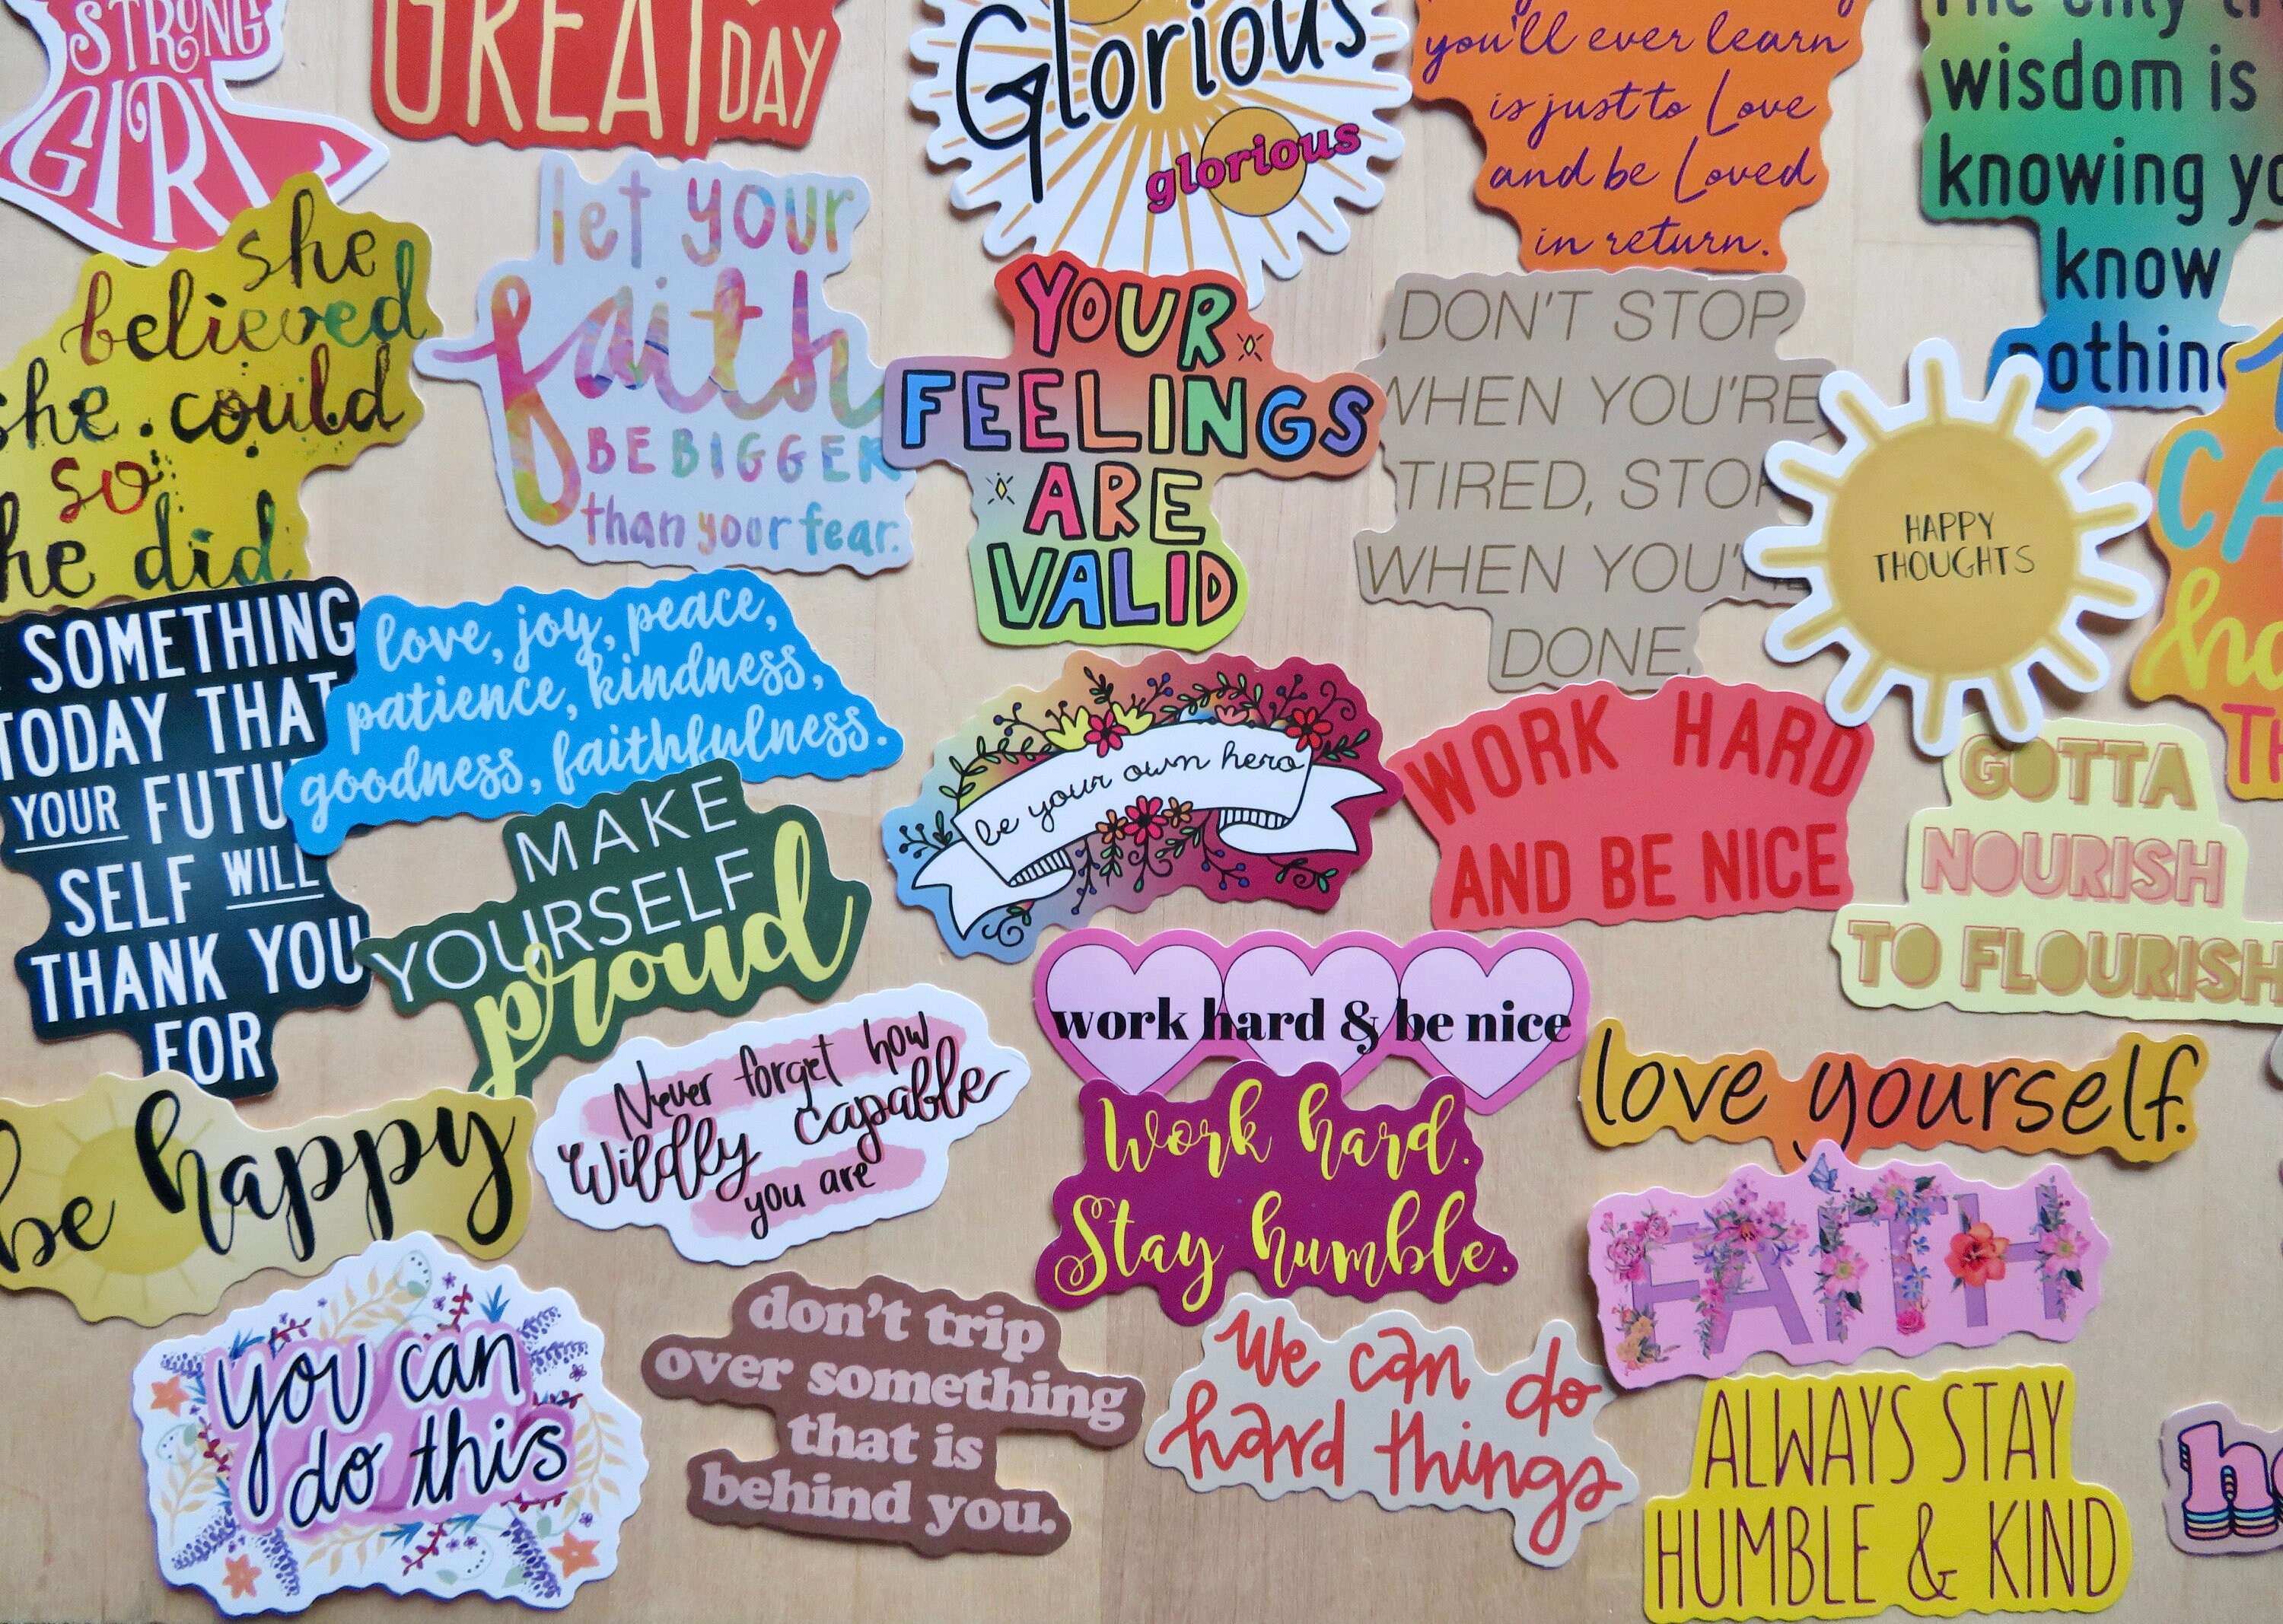 STRONG
GIRL
GREAT
DAY
Glorious
glorious
you'll ever learn
is just to Love
and be Loved
in return.
The only
wisdom is
knowing
know
nothing
she
believed
she could
so
he did
let your
faith
BE BIGGER
than your fear.
YOUR
FEELINGS
ARE
VALID
DON'T STOP
WHEN YOU'RE
TIRED, STOP
WHEN YOU'RE
DONE.
HAPPY
THOUGHTS
CA
ha
TH
SOMETHING
TODAY THAT
YOUR FUTU
SELF WILL
THANK YOU
FOR
love, joy, peace,
patience, kindness,
goodness, faithfulness.
MAKE
YOURSELF
proud
be your own hero
WORK HARD
AND BE NICE
GOTTA
NOURISH
TO FLOURISH
work hard & be nice
love yourself.
be happy
Never forget how
Wildly capable
you are
Work hard.
Stay humble.
FAITH
you can
do this
don't trip
over something
that is
behind you.
We can do
hard things
ALWAYS STAY
HUMBLE & KIND